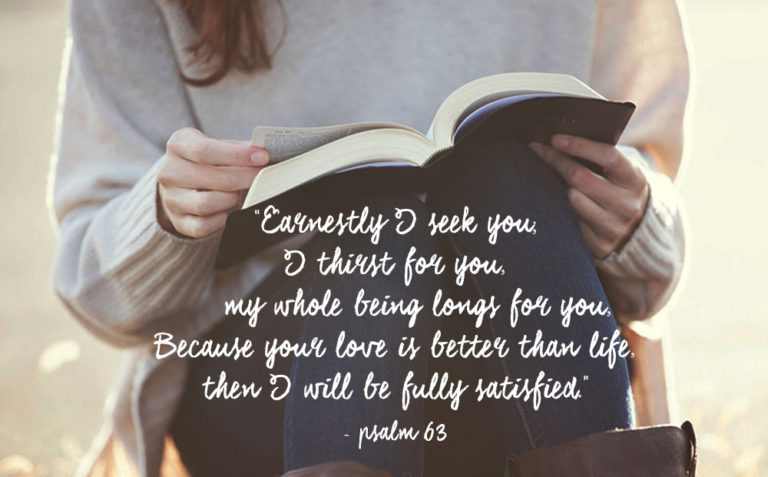 "Earnestly I seek you,
I thirst for you,
my whole being longs for you,
Because your love is better than life,
then I will be fully satisfied."
- psalm 63